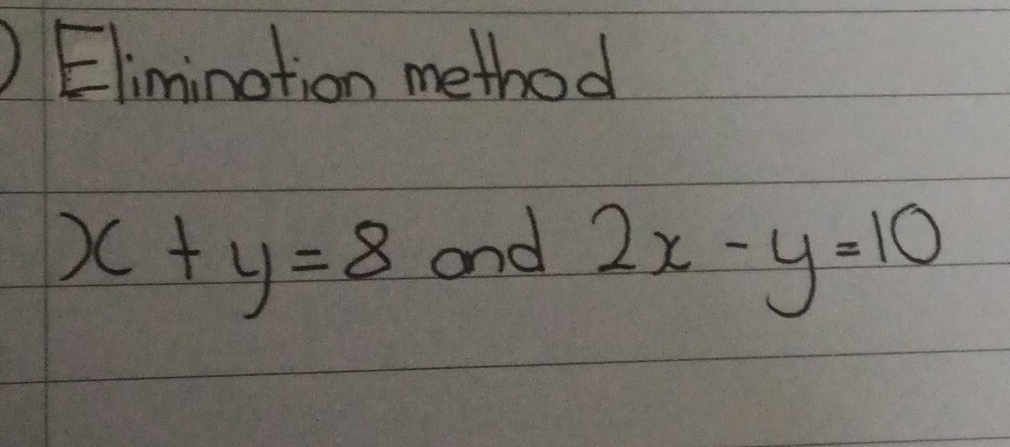 ) Elimination method
x + y = 8 and 2x - y = 10